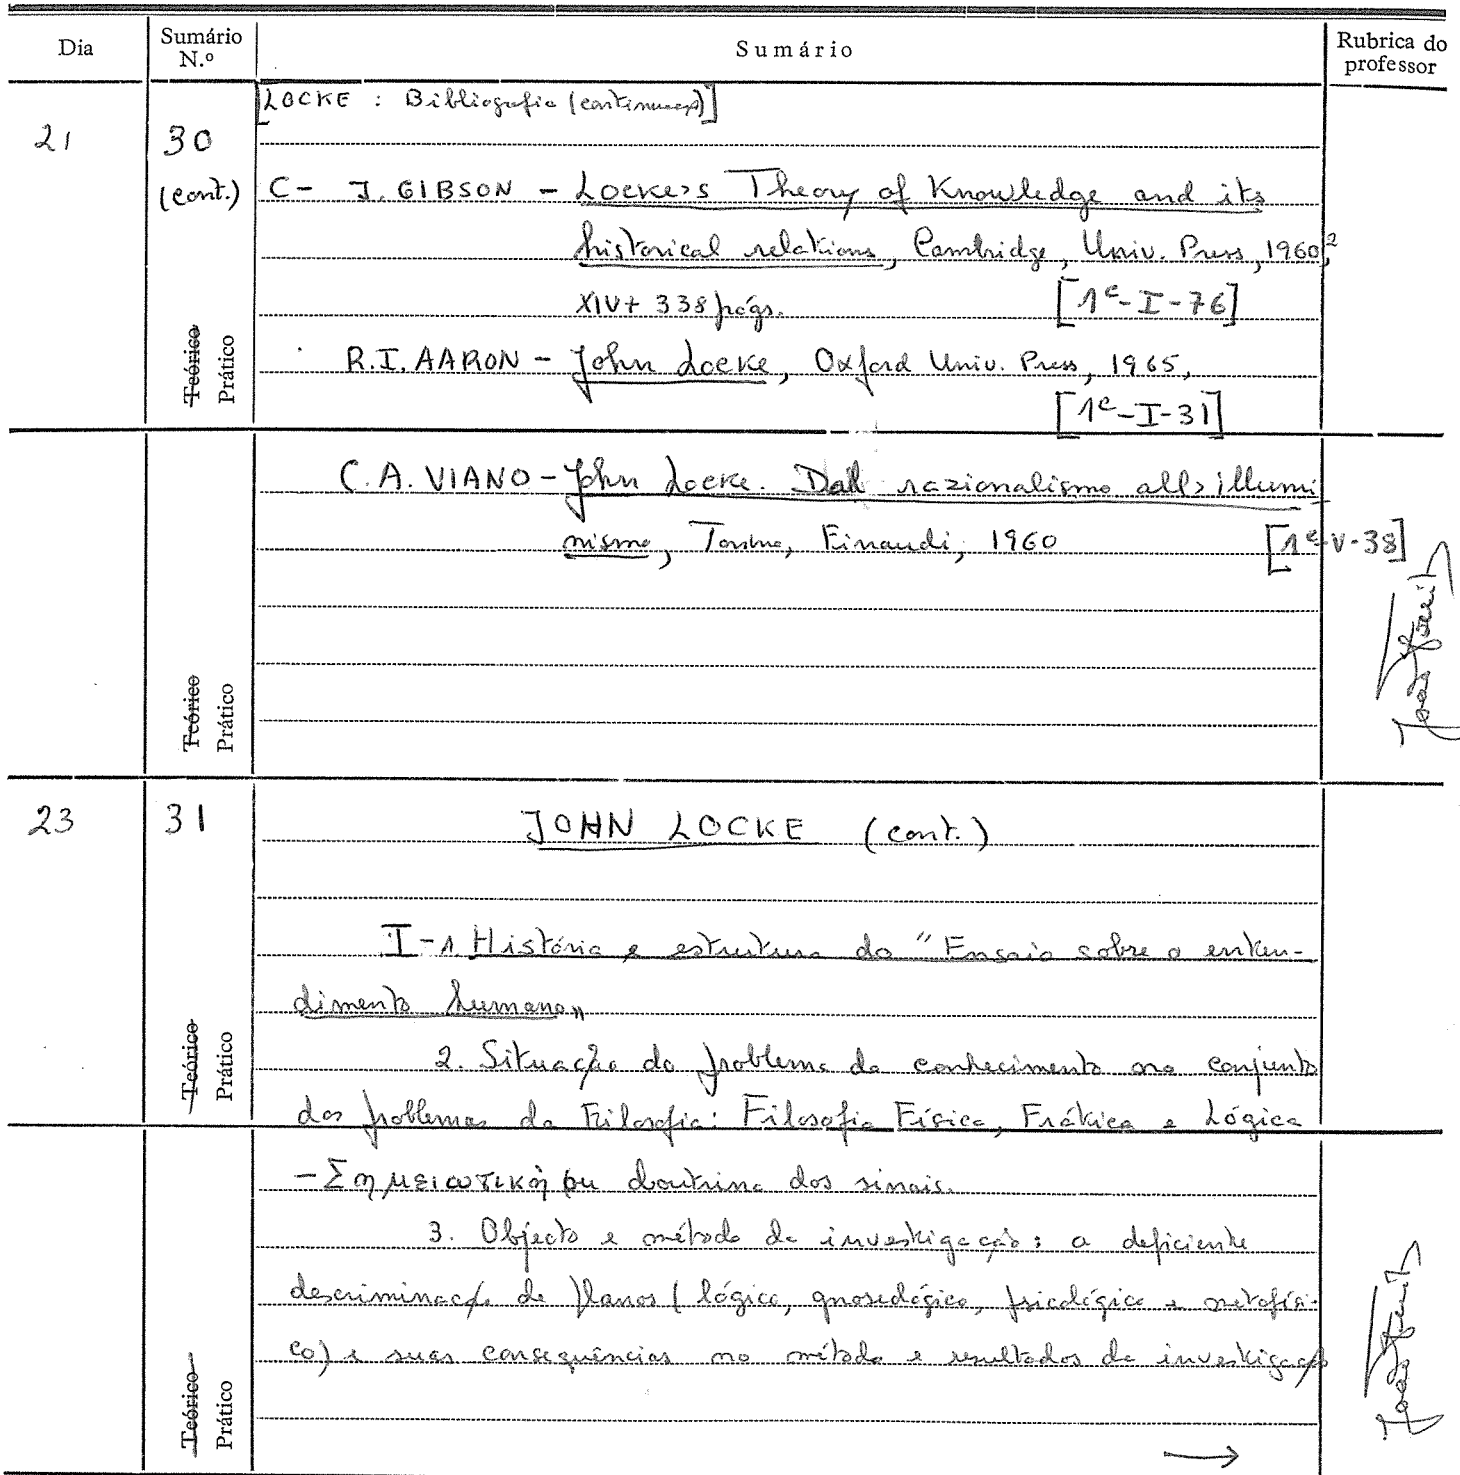 Dia
Sumário N.º
Sumário
Rubrica do professor
[LOCKE : Bibliografia (continuação)]
21
30
(cont.)
C- J. GIBSON - Locke's Theory of Knowledge and its
historical relations, Cambridge, Univ. Press, 1960²,
XIV+ 338 págs. [1c-I-76]
R.I. AARON - John Locke, Oxford Univ. Press, 1965,
[1c-I-31]
Teórico
Prático
C. A. VIANO - John Locke. Dal razionalismo all'illumi-
nismo, Torino, Einaudi, 1960 [1c-V-38]
Teórico
Prático
23
31
JOHN LOCKE (cont.)
I-1. História e estrutura do "Ensaio sobre o enten-
dimento humano"
2. Situação do problema do conhecimento no conjunto
dos problemas da Filosofia: Filosofia Física, Prática e Lógica
Teórico
Prático
- Σημειωτική ou doutrina dos sinais.
3. Objecto e método da investigação: a deficiente
descriminação de planos (lógico, gnoseológico, psicológico e metafísi-
co) e suas consequências no método e resultados da investigação
Teórico
Prático
→